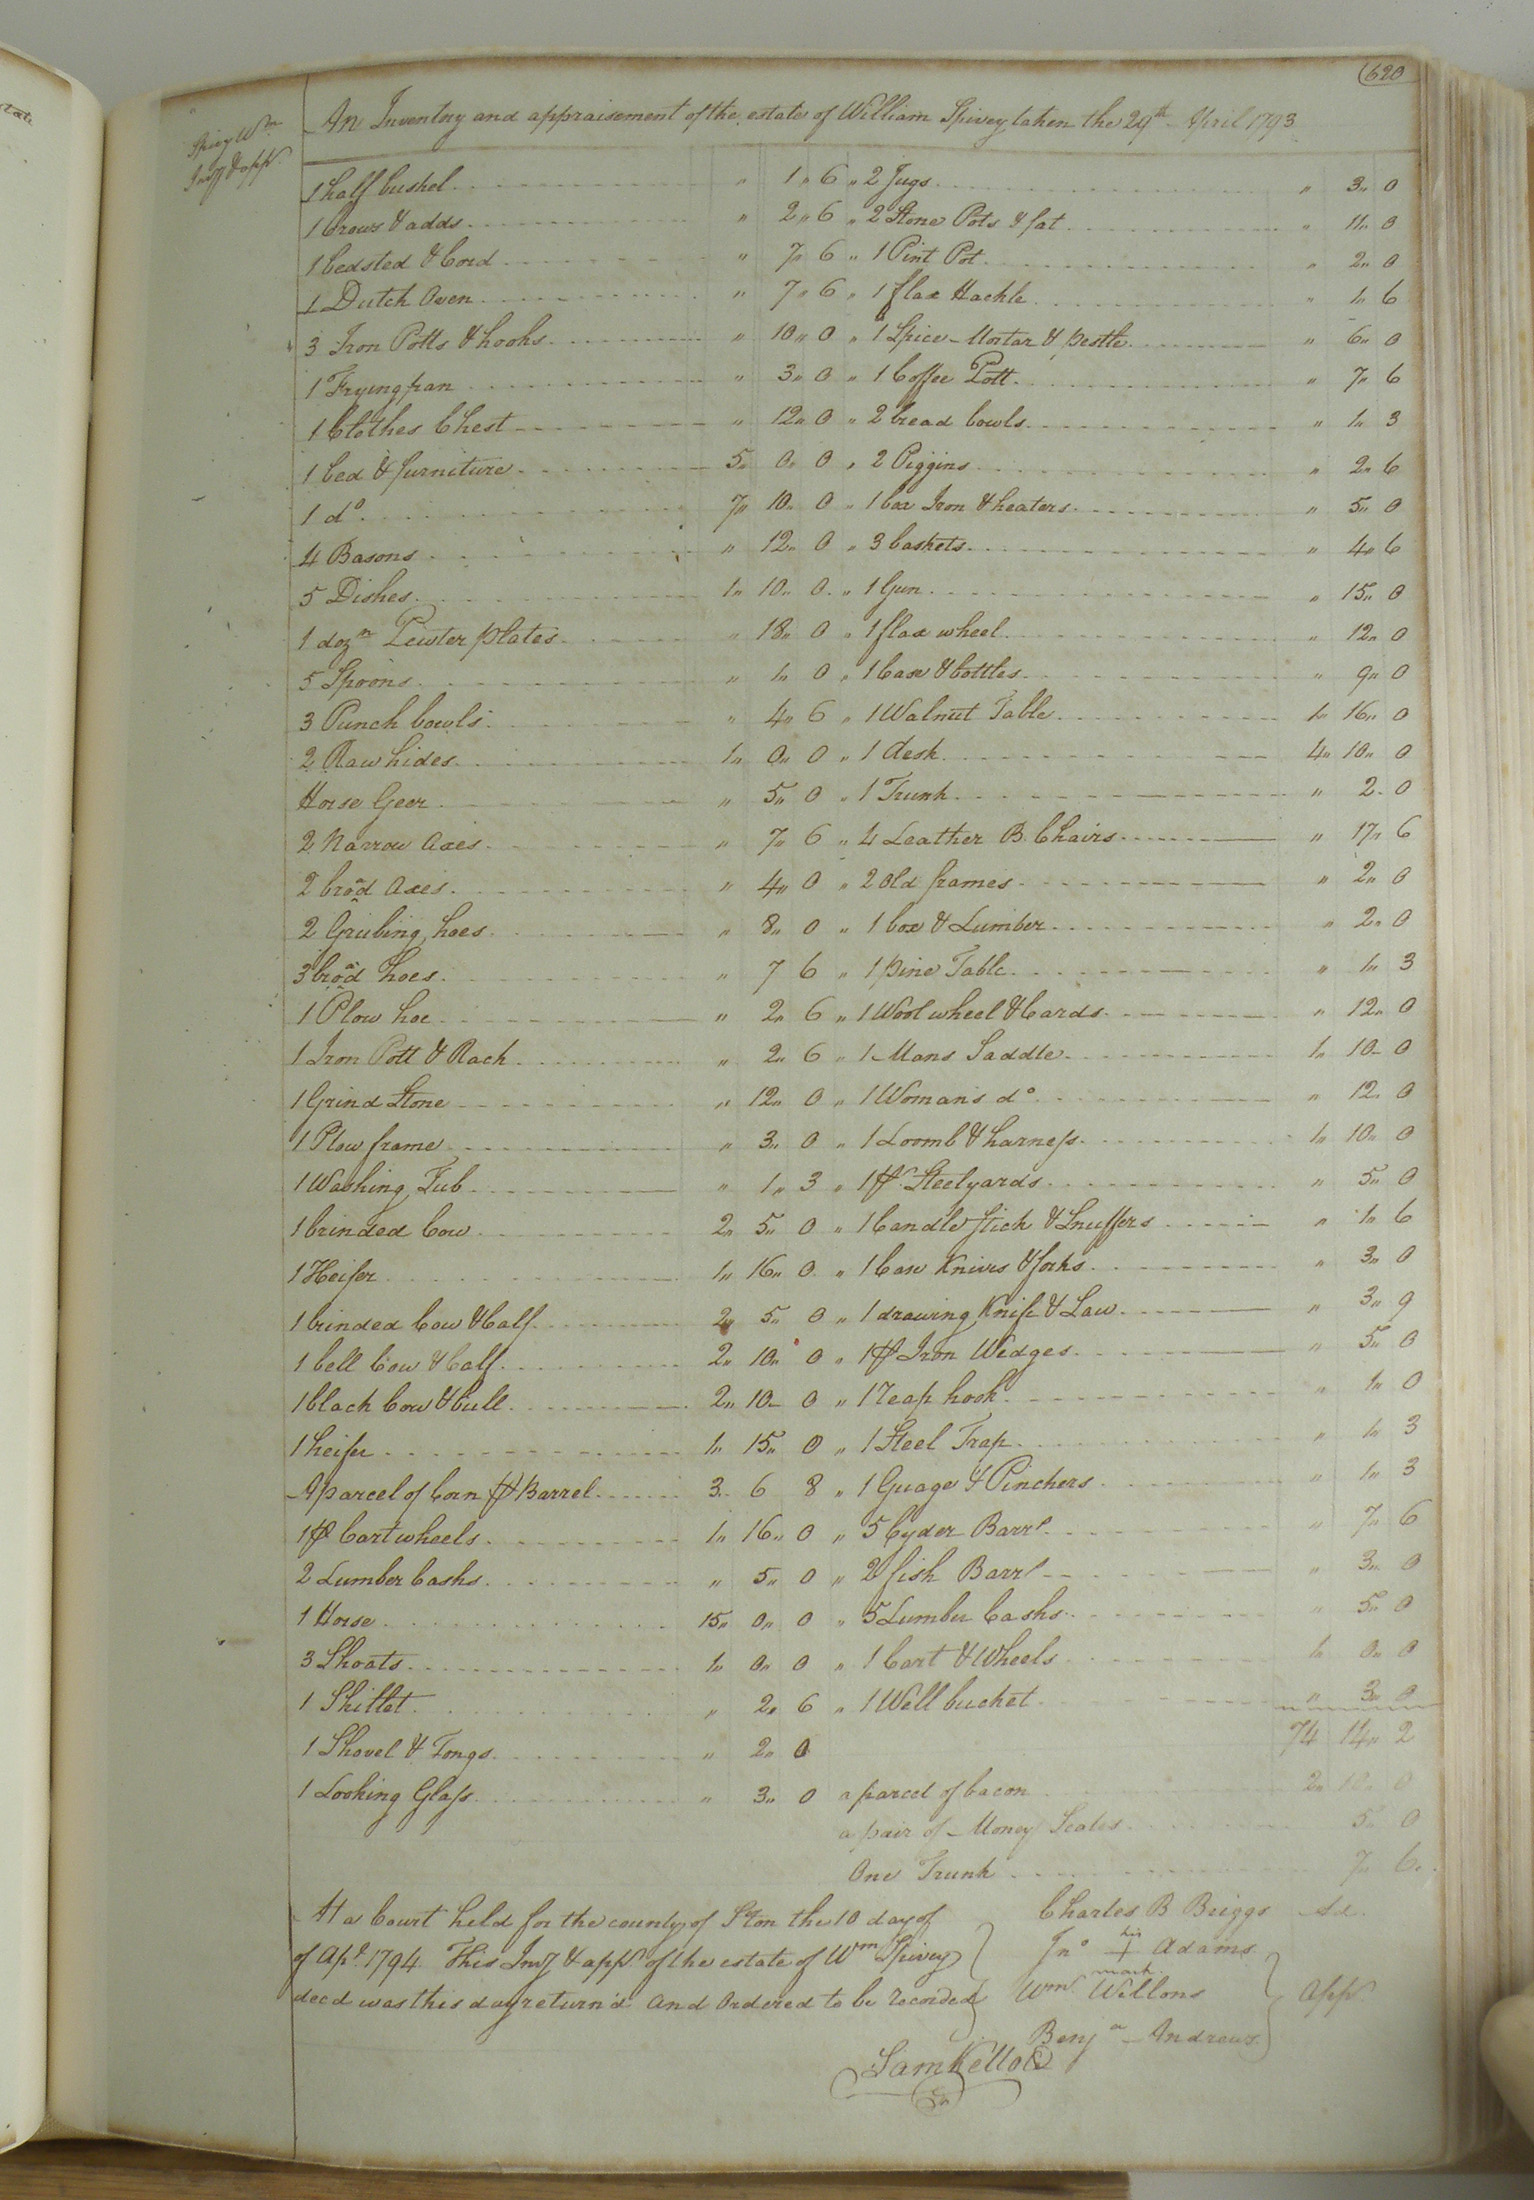 620
An Inventory and appraisement of the estate of William Spivey taken the 29th April 1793
Spivey Wm
Invy & appt
1 half bushel " 1 " 6 " 2 Jugs " 3 " 0
1 Crows & adds " 2 " 6 " 2 Stone Pots & fat " 11 " 0
1 bedsted & Cord " 7 " 6 " 1 Pint Pot " 2 " 0
1 Dutch Oven " 7 " 6 " 1 flax Hackle " 1 " 6
3 Iron Potts & hooks " 10 " 0 " 1 Spice Mortar & pestle " 6 " 0
1 Fryingpan " 3 " 0 " 1 Coffee Pott " 7 " 6
1 Clothes Chest " 12 " 0 " 2 bread bowls " 1 " 3
1 bed & furniture 5 " 0 " 0 " 2 Piggins " 2 " 6
1 do 7 " 10 " 0 " 1 box Iron & heaters " 5 " 0
4 Basons " 12 " 0 " 3 baskets " 4 " 6
5 Dishes 1 " 10 " 0 " 1 Gun " 15 " 0
1 dozn Pewter plates " 18 " 0 " 1 flax wheel " 12 " 0
5 Spoons " 1 " 0 " 1 Case & bottles " 9 " 0
3 Punch bowls " 4 " 6 " 1 Walnut Table 1 " 16 " 0
2 Raw hides 1 " 0 " 0 " 1 desk 4 " 10 " 0
Horse Geer " 5 " 0 " 1 Trunk " 2 " 0
2 Narrow Axes " 7 " 6 " 4 Leather B. Chairs " 17 " 6
2 broad Axes " 4 " 0 " 2 Old frames " 2 " 0
2 Grubing hoes " 8 " 0 " 1 box & Lumber " 2 " 0
3 broad hoes " 7 6 " 1 pine Table " 1 " 3
1 Plow hoe " 2 " 6 " 1 Wool wheel & Cards " 12 " 0
1 Iron Pott & Rack " 2 " 6 " 1 Mans Saddle 1 " 10 " 0
1 Grind Stone " 12 " 0 " 1 Womans do " 12 " 0
1 Plow frame " 3 " 0 " 1 Loomb & harness 1 " 10 " 0
1 Washing Tub " 1 " 3 " 1 pr Steelyards " 5 " 0
1 brinded Cow 2 " 5 " 0 " 1 Candle Stick & Snuffers " 1 " 6
1 Heifer 1 " 16 " 0 " 1 Case Knives & forks " 3 " 0
1 brinded Cow & Calf 2 " 5 " 0 " 1 drawing Knife & Saw " 3 " 9
1 bell Cow & Calf 2 " 10 " 0 " 1 pr Iron Wedges " 5 " 0
1 black Cow & bull 2 " 10 " 0 " 1 reap hook " 1 " 0
1 heifer 1 " 15 " 0 " 1 Steel Trap " 1 " 3
A parcel of Corn pr Barrel 3 " 6 8 " 1 Guage & Pinchers " 1 " 3
1 pr Cart wheels 1 " 16 " 0 " 5 Cyder Barrs " 7 " 6
2 Lumber Casks " 5 " 0 " 2 fish Barrs " 3 " 0
1 Horse 15 " 0 " 0 " 5 Lumber Casks " 5 " 0
3 Shoats 1 " 0 " 0 " 1 Cart & Wheels 1 " 0 " 0
1 Skillet " 2 " 6 " 1 Well bucket " 3 " 0
1 Shovel & Tongs " 2 " 0 74 14 " 2
1 Looking Glass " 3 " 0 a parcel of bacon 2 " 0
a pair of Money Scales 5 " 0
One Trunk 7 " 6
At a Court held for the county of Ston the 10 day of
of Apl 1794. This Invy & appt of the estate of Wm Spivey
decd was this day return'd and Ordered to be recorded
Charles B Briggs Ad.
his
Jno + Adams
mark
Wm Willons
Benja Andrews
apprs
Sam Kello Cl